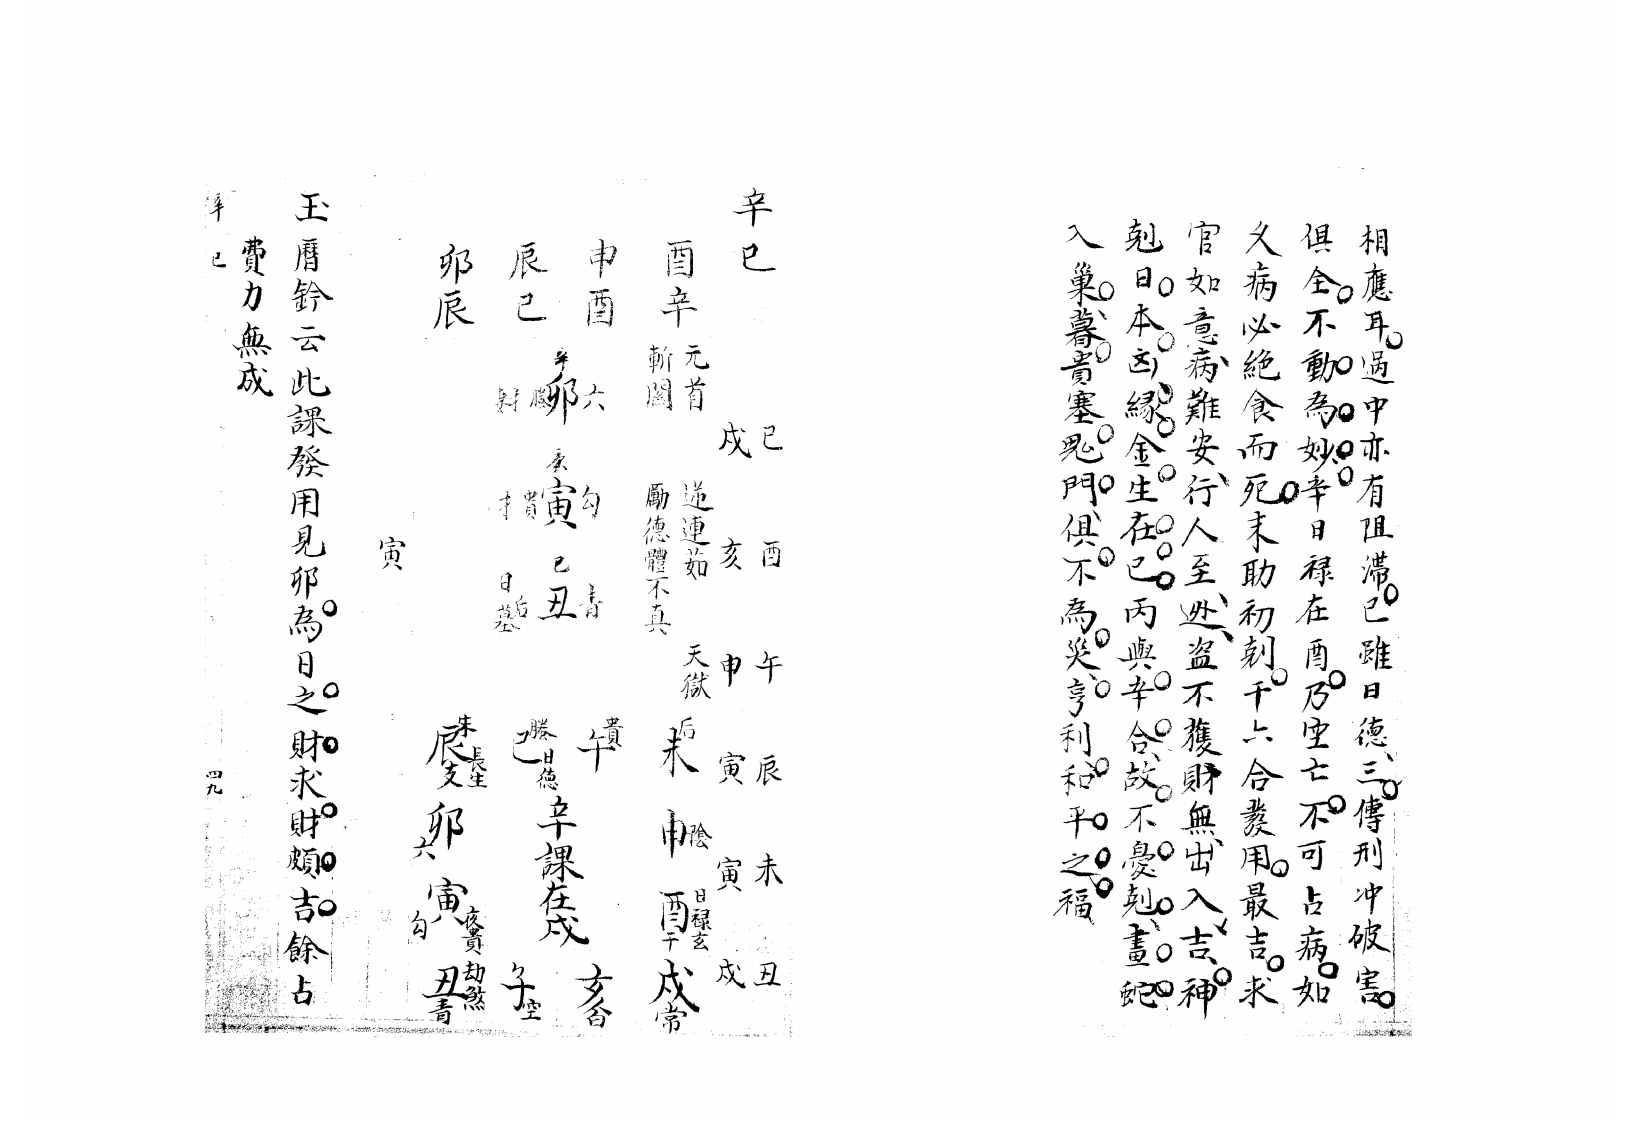 相應耳過中亦有阻滯巳雖日德三傳刑冲破害
俱全不動為妙辛日禄在酉乃空亡不可占病如
父病必絕食而死末助初剋干六合發用最吉求
官如意病難安行人至逃盜不獲財無出入吉神
剋日本凶緣金生在巳丙與辛合故不憂剋晝蛇
入巢暮貴塞鬼門俱不為災亨利和平之福
辛巳
巳 酉 午 辰 未 丑
戌 亥 申 寅 寅 戌
酉辛
元首 逆連茹 天獄
斬關 勵德體不真
申酉
辰巳
卯辰
六 辛卯 螣
勾 庚寅 貴 才
青 己丑 后 日墓
后未 申陰 酉日禄玄干 戌常
貴午 亥白
螣巳日德 辛課在戌 子空
朱辰長生支 卯六 寅勾夜貴 丑青劫煞
寅
玉曆鈐云此課發用見卯為日之財求財頗吉餘占
費力無成
辛巳 四九